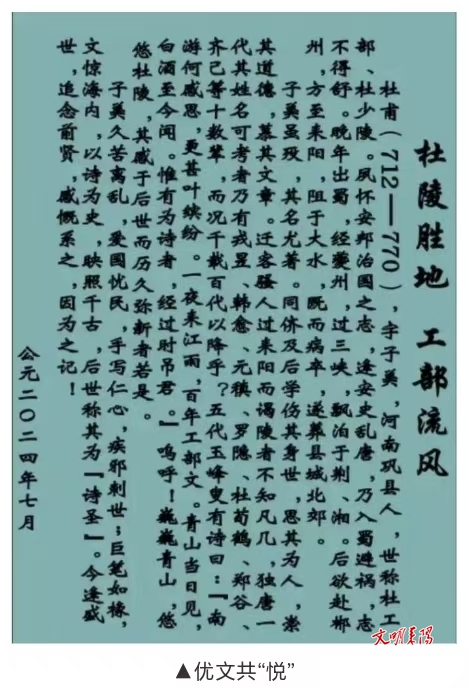 杜陵胜地 工部流风
杜甫（712—770），字子美，河南巩县人，世称杜工
部、杜少陵。夙怀安邦治国之志，逢安史乱唐，乃入蜀避祸，志
不得舒。晚年出蜀，经夔州，过三峡，飘泊于荆、湘。后欲赴郴
州，方至耒阳，阻于大水，既而病卒，遂葬县城北郊。
子美虽殁，其名尤著。同侪及后学伤其身世，思其为人，崇
其道德，慕其文章。迁客骚人过耒阳而谒陵者不知凡几，独唐一
代其姓名可考者乃有戎昱、韩愈、元稹、罗隐、杜荀鹤、郑谷、
齐己等十数辈，而况千载百代以降乎？五代玉峰叟有诗曰：『南
游何感思，更甚叶缤纷。一夜耒江雨，百年工部文。青山当日见，
白酒至今闻。惟有为诗者，经过时吊君。』呜呼！巍巍青山，悠
悠杜陵，其感于后世而历久弥新者若是。
子美久苦离乱，爱国忧民，手写仁心，疾邪刺世；巨笔如椽，
文惊海内，以诗为史，映照千古，后世称其为『诗圣』。今逢盛
世，追念前贤，感慨系之，因为之记！
公元二〇二四年七月
文明耒阳
▲优文共“悦”